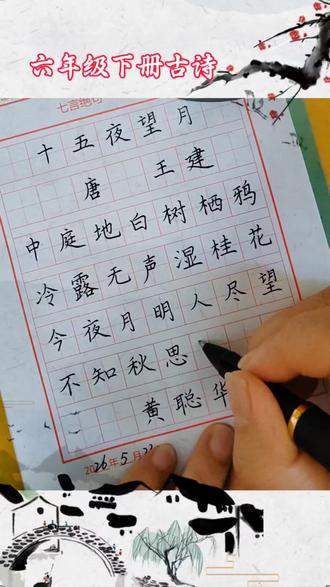 六年级下册古诗
七言绝句
十五夜望月
唐 王建
中庭地白树栖鸦
冷露无声湿桂花
今夜月明人尽望
不知秋思
黄聪华
2026年5月